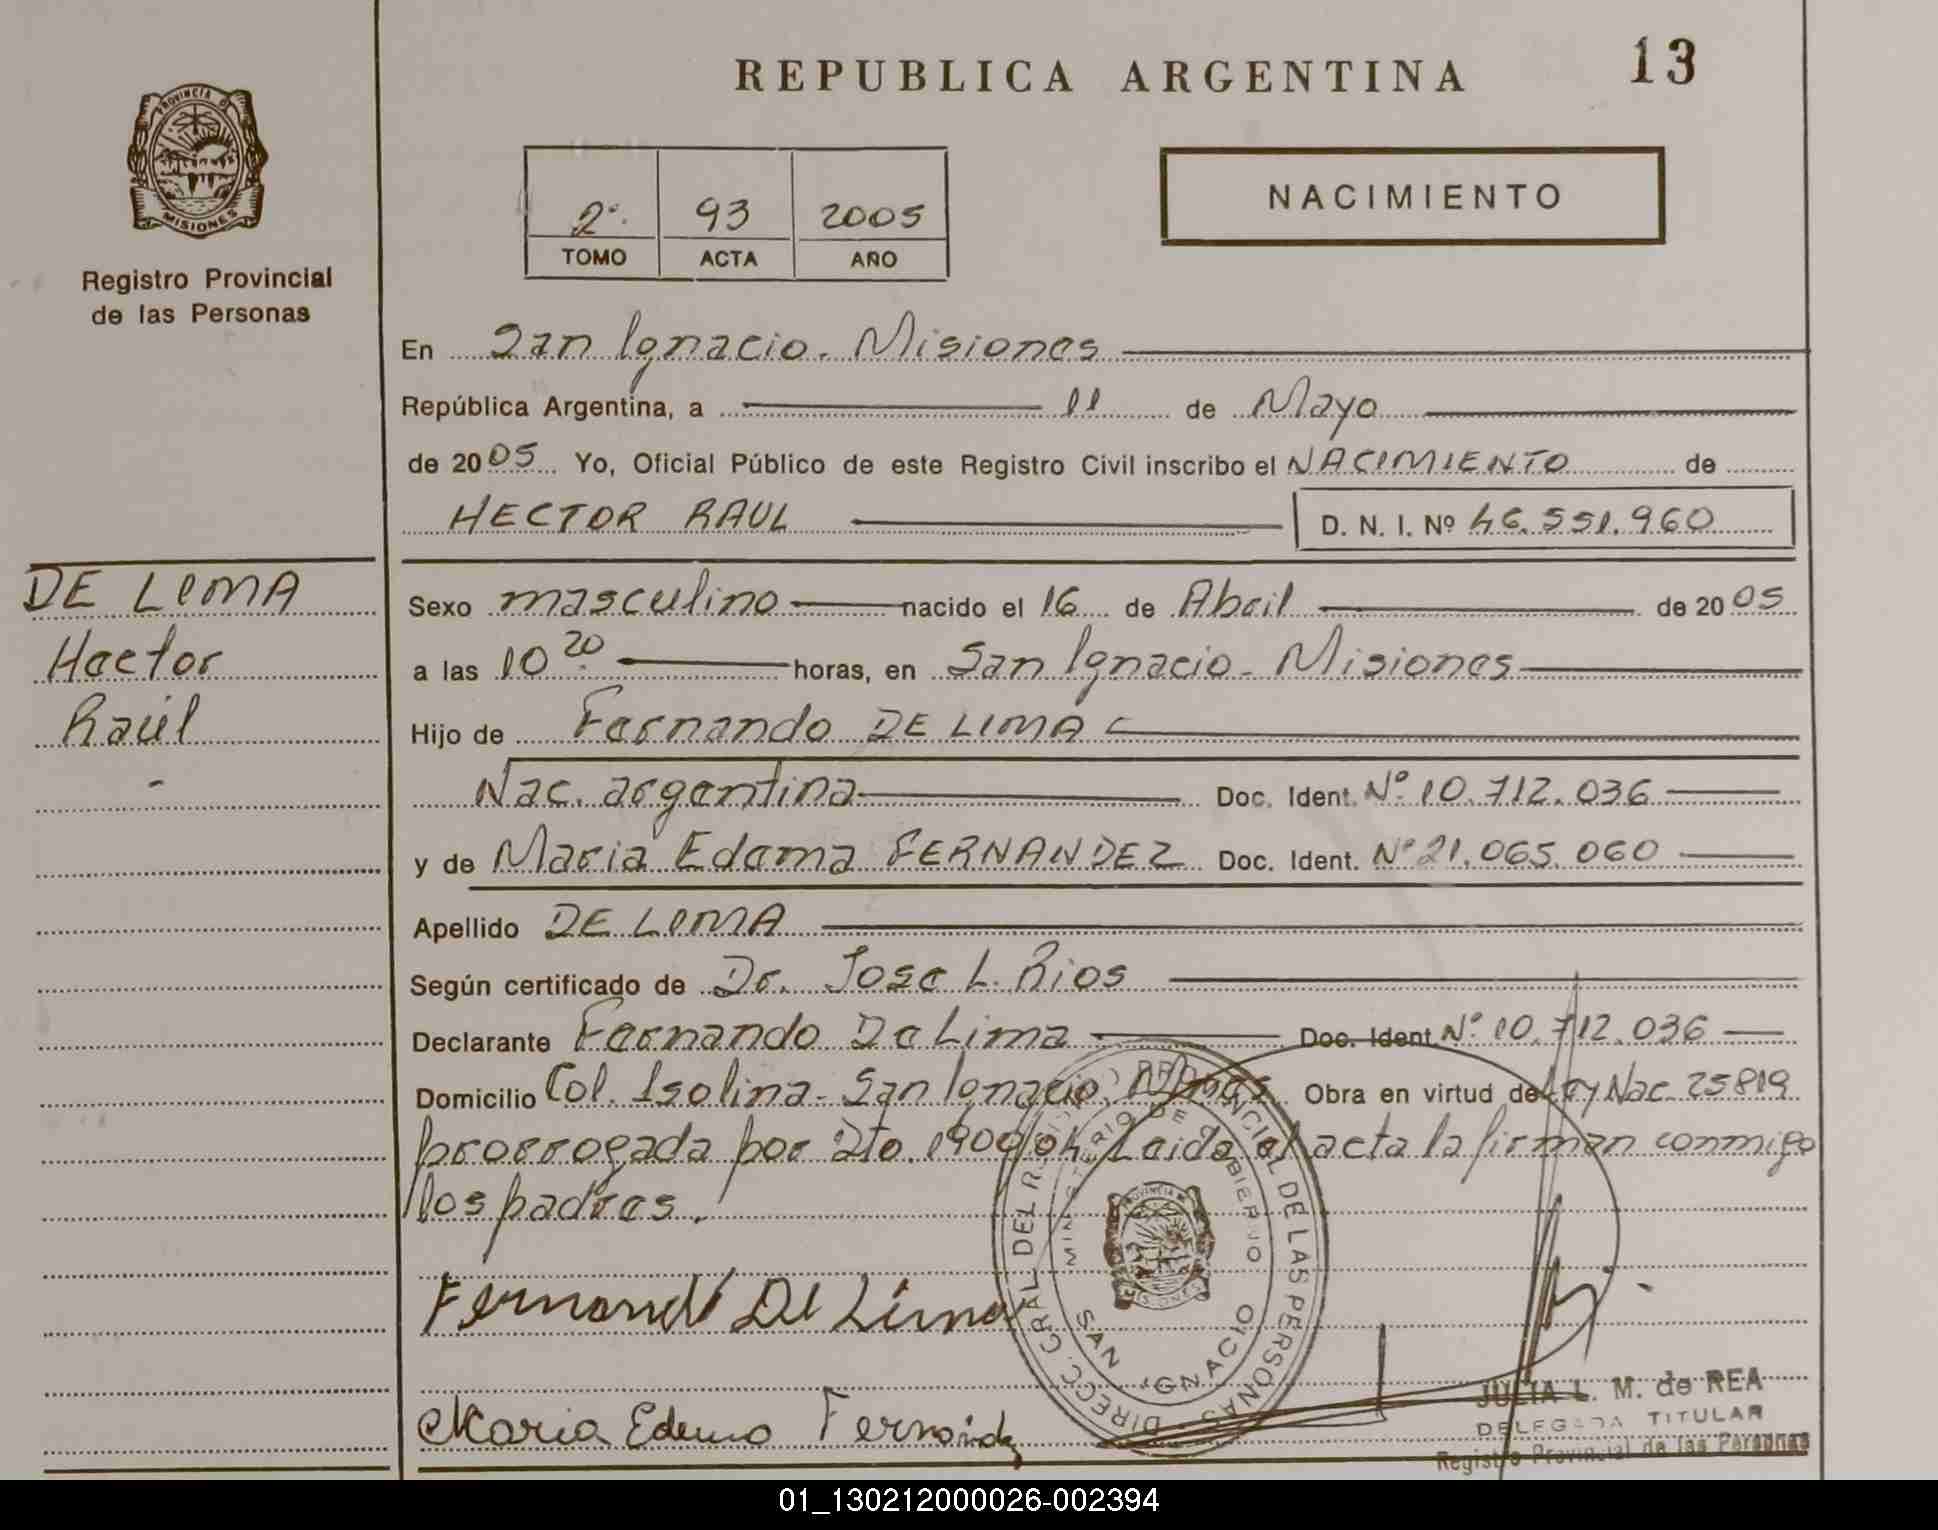 REPUBLICA ARGENTINA
13
PROVINCIA DE
MISIONES
Registro Provincial
de las Personas
2º. 93 2005
TOMO ACTA AÑO
NACIMIENTO
En San Ignacio. Misiones
República Argentina, a 11 de Mayo
de 2005 Yo, Oficial Público de este Registro Civil inscribo el NACIMIENTO de
HECTOR RAUL D. N. I. Nº 46.551.960
DE LIMA
Hector
Raúl
-
Sexo masculino nacido el 16 de Abril de 2005
a las 10 20 horas, en San Ignacio - Misiones
Hijo de Fernando DE LIMA
Nac. argentina Doc. Ident. Nº 10.712.036
y de Maria Edema FERNANDEZ Doc. Ident. Nº 21.065.060
Apellido DE LIMA
Según certificado de Dr. Jose L. Rios
Declarante Fernando De Lima Doc. Ident. Nº 10.712.036
Domicilio Col. Isolina - San Ignacio. Mnes Obra en virtud de Ley Nac. 25819
prorrogada por Dto. 1900/04 Leida el acta la firman conmigo
los padres.
Fernando De Lima
Maria Edema Fernández
DIRECC. GRAL DEL REGISTRO PROVINCIAL DE LAS PERSONAS
MINISTERIO DE GOBIERNO
PROVINCIA DE
MISIONES
SAN IGNACIO
JULIA L. M. de REA
DELEGADA TITULAR
Registro Provincial de las Personas
01_130212000026-002394